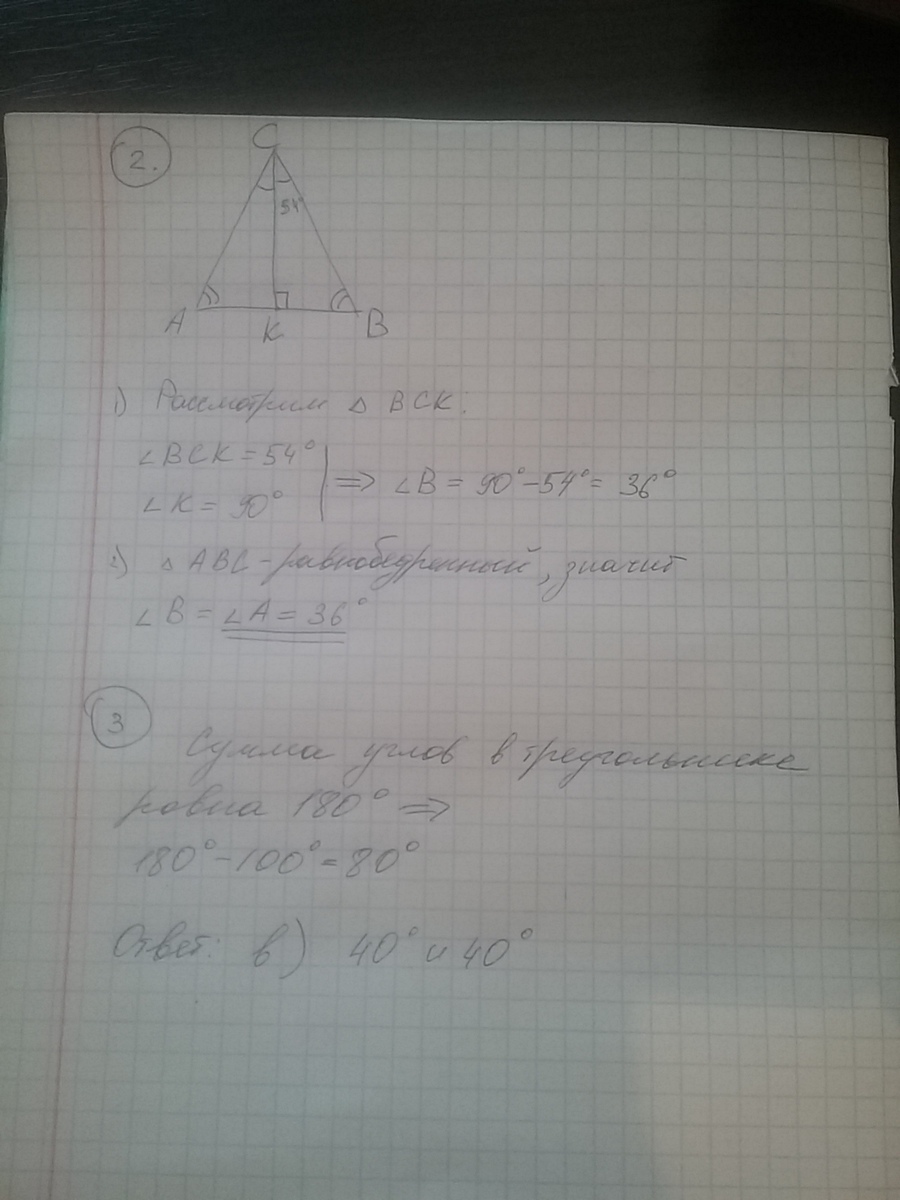 2.
C
54°
A
K
B
1) Рассмотрим △ BCK:
∠BCK = 54°
∠K = 90°
⇒ ∠B = 90° - 54° = 36°
2) △ ABC - равнобедренный, значит
∠B = ∠A = 36°
3
Сумма углов в треугольнике
равна 180° ⇒
180° - 100° = 80°
Ответ: в) 40° и 40°